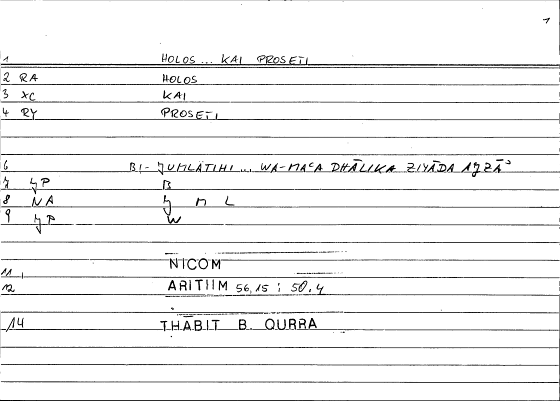 1
1 HOLOS ... KAI PROSETI
2 RA HOLOS
3 XC KAI
4 RY PROSETI
6 BI- JUMLATIHI ... WA-MAᶜA DHĀLIKA ZIYĀDA AJZĀʾ
7 JP B
8 NA J M L
9 JP W
11 NICOM
12 ARITIIM 56,15 ; 50.4
14 THĀBIT B. QURRA